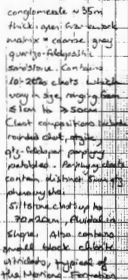 conglomerate ~35m
thick, open framework
matrix = coarse, grey
quartzo-feldspathic
sandstone. Contains
10-20% clasts which
vary in size, ranging from
<1cm to >50cm
Clast compositions include
rounded chert,
qtz-feldspar porphyry
Porphyry clasts
contain distinct 5mm qtz
phenocrysts.
Siltstone clasts up to
70x20cm, fluidal in
shape. Also contains
small black
typical of
the Formation